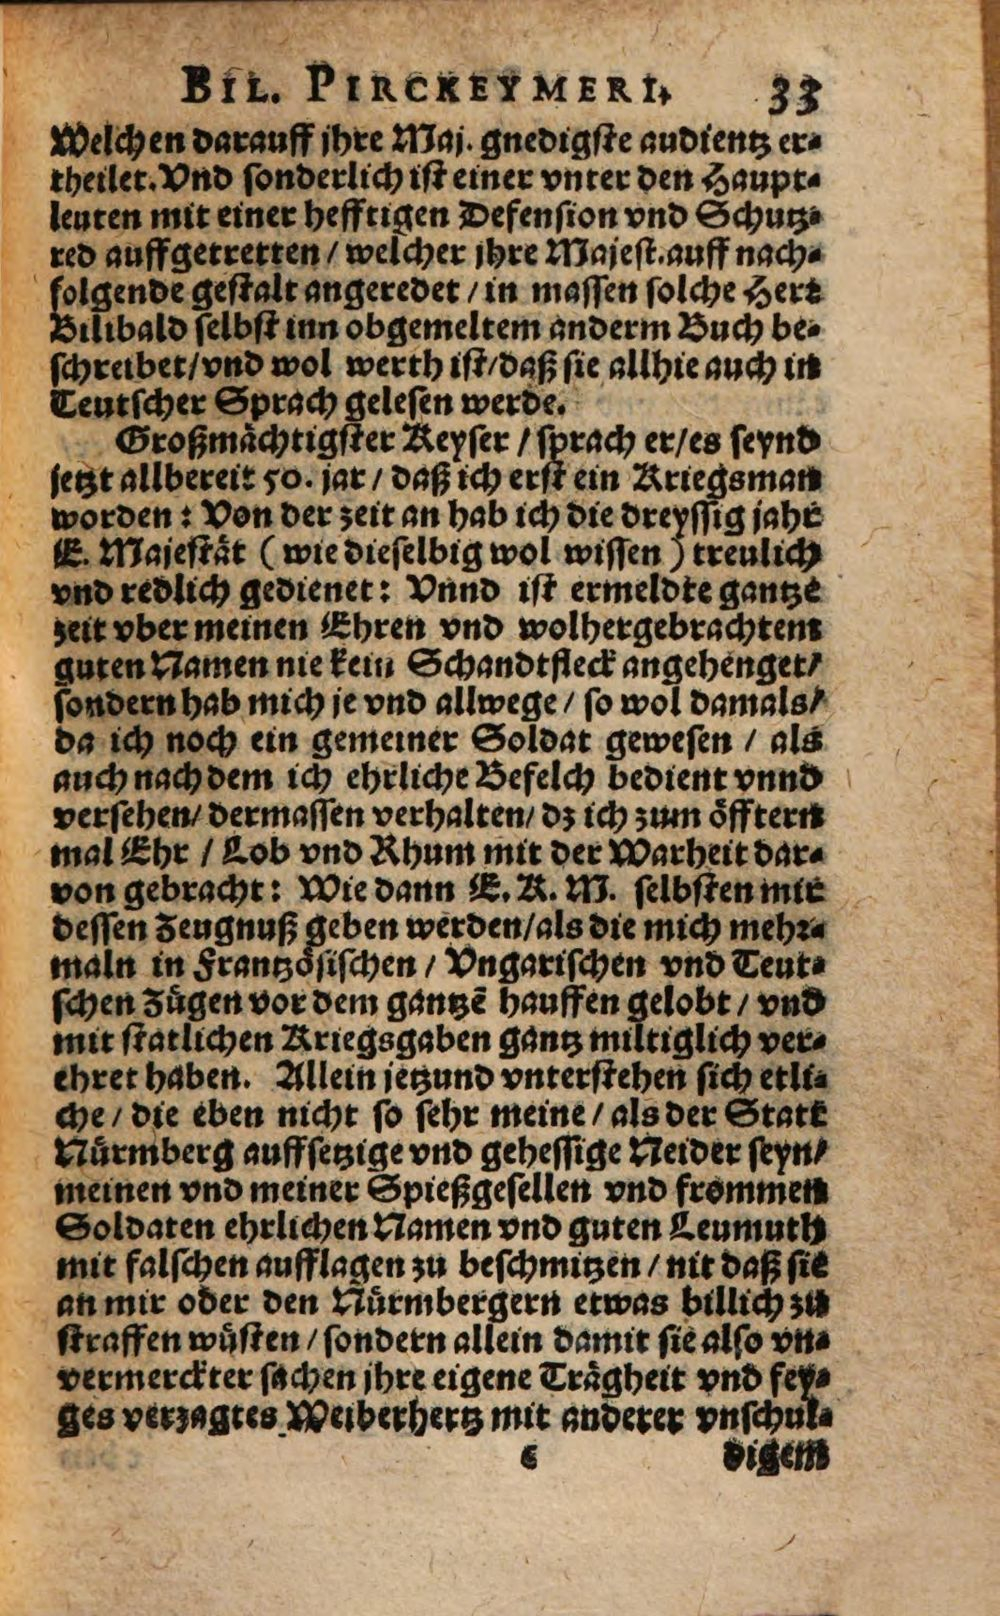 BIL. PIRCKEYMERI. 33
Welchen darauff jhre Maj. gnedigste audientz er-
theilet. Vnd sonderlich ist einer vnter den Haupt-
leuten mit einer hefftigen Defension vnd Schutz-
red auffgetretten / welcher jhre Majest. auff nach-
folgende gestalt angeredet / in massen solche Herr
Bilibald selbst inn obgemeltem anderm Buch be-
schreibet/vnd wol werth ist/daß sie allhie auch in
Teutscher Sprach gelesen werde.
Großmächtigster Keyser / sprach er/es seynd
jetzt allbereit 50. jar / daß ich erst ein Kriegsman
worden: Von der zeit an hab ich die dreyssig jahr
E. Majestät (wie dieselbig wol wissen) treulich
vnd redlich gedienet: Vnnd ist ermeldte gantze
zeit vber meinen Ehren vnd wolhergebrachtem
guten Namen nie kein Schandtfleck angehenget/
sondern hab mich je vnd allwege / so wol damals/
da ich noch ein gemeiner Soldat gewesen / als
auch nach dem ich ehrliche Befelch bedient vnnd
versehen/ dermassen verhalten/ dz ich zum öfftern
mal Ehr / Lob vnd Rhum mit der Warheit dar-
von gebracht: Wie dann E. K. M. selbsten mir
dessen Zeugnuß geben werden/als die mich mehr-
maln in Frantzösischen / Vngarischen vnd Teut-
schen Zügen vor dem gantzē hauffen gelobt / vnd
mit statlichen Kriegsgaben gantz miltiglich ver-
ehret haben. Allein jetzund vnterstehen sich etli-
che / die eben nicht so sehr meine / als der Statt
Nürmberg auffsetzige vnd gehessige Neider seyn/
meinen vnd meiner Spießgesellen vnd frommen
Soldaten ehrlichen Namen vnd guten Leumuth
mit falschen aufflagen zu beschmitzen / nit daß sie
an mir oder den Nürmbergern etwas billich zu
straffen wüsten / sondern allein damit sie also vn-
vermerckter sachen jhre eigene Trägheit vnd fey-
ges verzagtes Weiberhertz mit anderer vnschul-
c digem